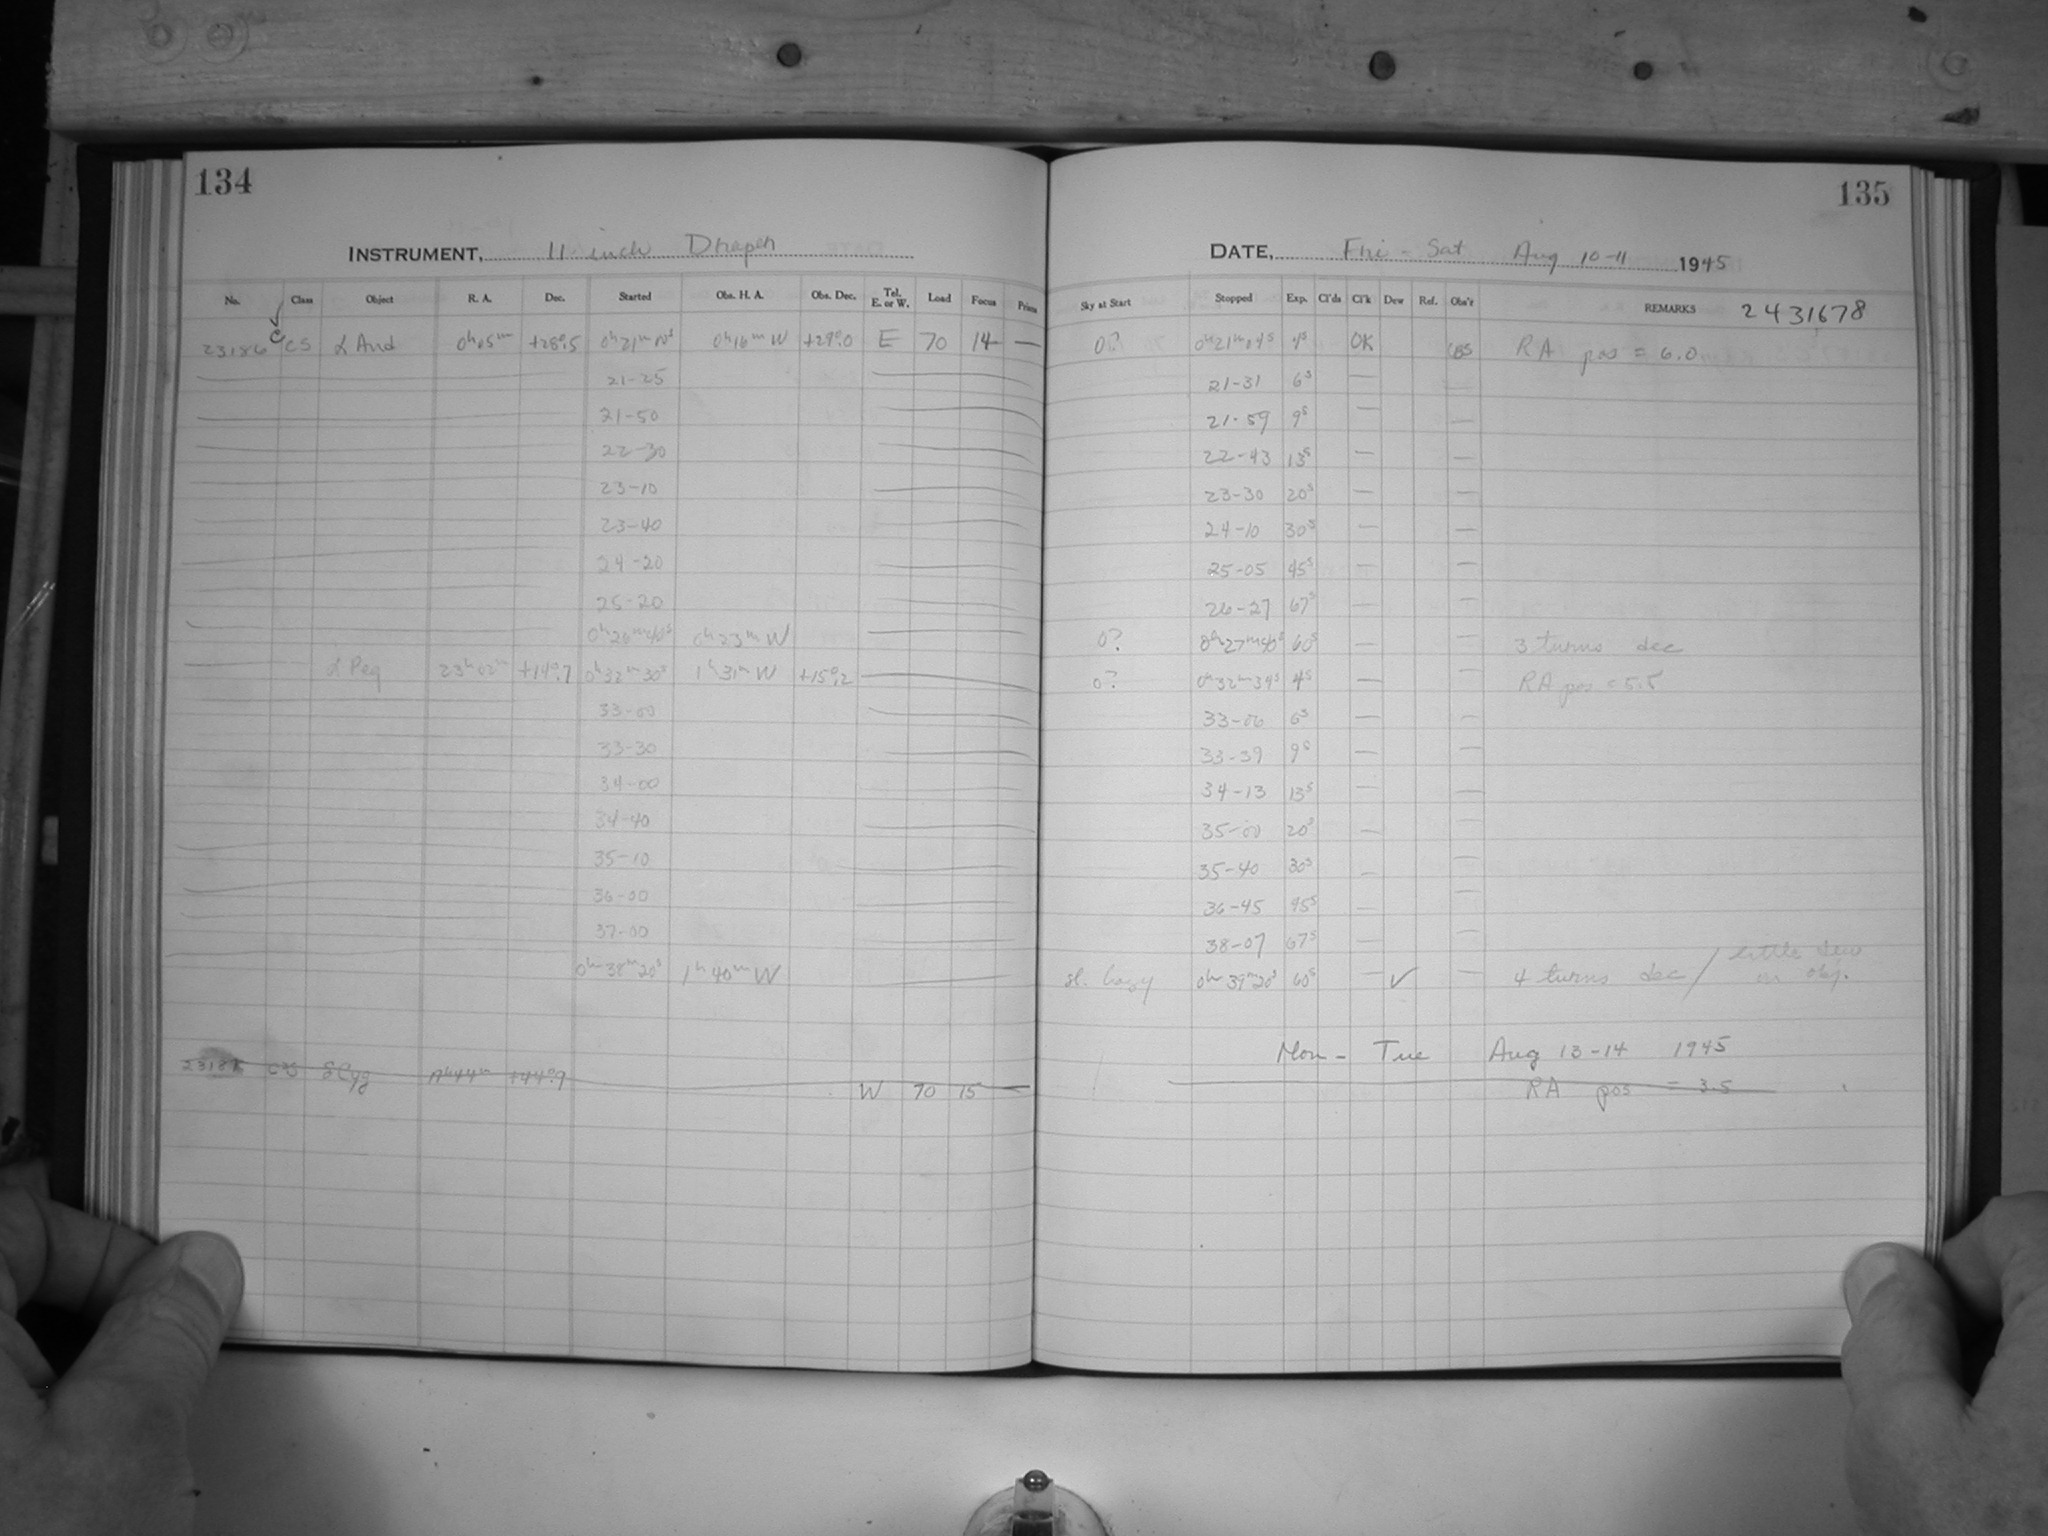 134
INSTRUMENT, 11-inch Draper
No. Class Object R. A. Dec. Started Obs. H. A. Obs. Dec. Tel. E. or W. Load Focus Prism
23186 C CS α And 0h05m +28°.5 0h21m 0h16m W +29°.0 E 70 14 —
21-25
21-50
22-30
23-10
23-40
24-20
25-20
0h26m40s 0h23m W
α Peg 23h02m +14°.7 0h32m30s 1h31m W +15°.2
33-00
33-30
34-00
34-40
35-10
36-00
37-00
0h38m20s 1h40m W
δ Cyg +44°.9
W 70 15 —
135
DATE, Fri - Sat Aug 10-11 1945
Sky at Start Stopped Exp. Cl'ds Cl'k Dew Ref. Obs'r REMARKS 2431678
0? 0h21m04s 4s OK RA pos = 6.0
21-31 6s — —
21-59 9s — —
22-43 13s — —
23-30 20s — —
24-10 30s — —
25-05 45s — —
26-27 67s — —
0? 0h27m40s 60s — — 3 turns dec
0? 0h32m34s 4s — — RA pos = 5.5
33-06 6s — —
33-39 9s — —
34-13 13s — —
35-00 20s — —
35-40 30s — —
36-45 45s — —
38-07 67s — —
sl. hazy 0h39m20s 60s — ✓ — 4 turns dec / little dew on obj.
Mon - Tue Aug 13-14 1945
RA pos = 3.5